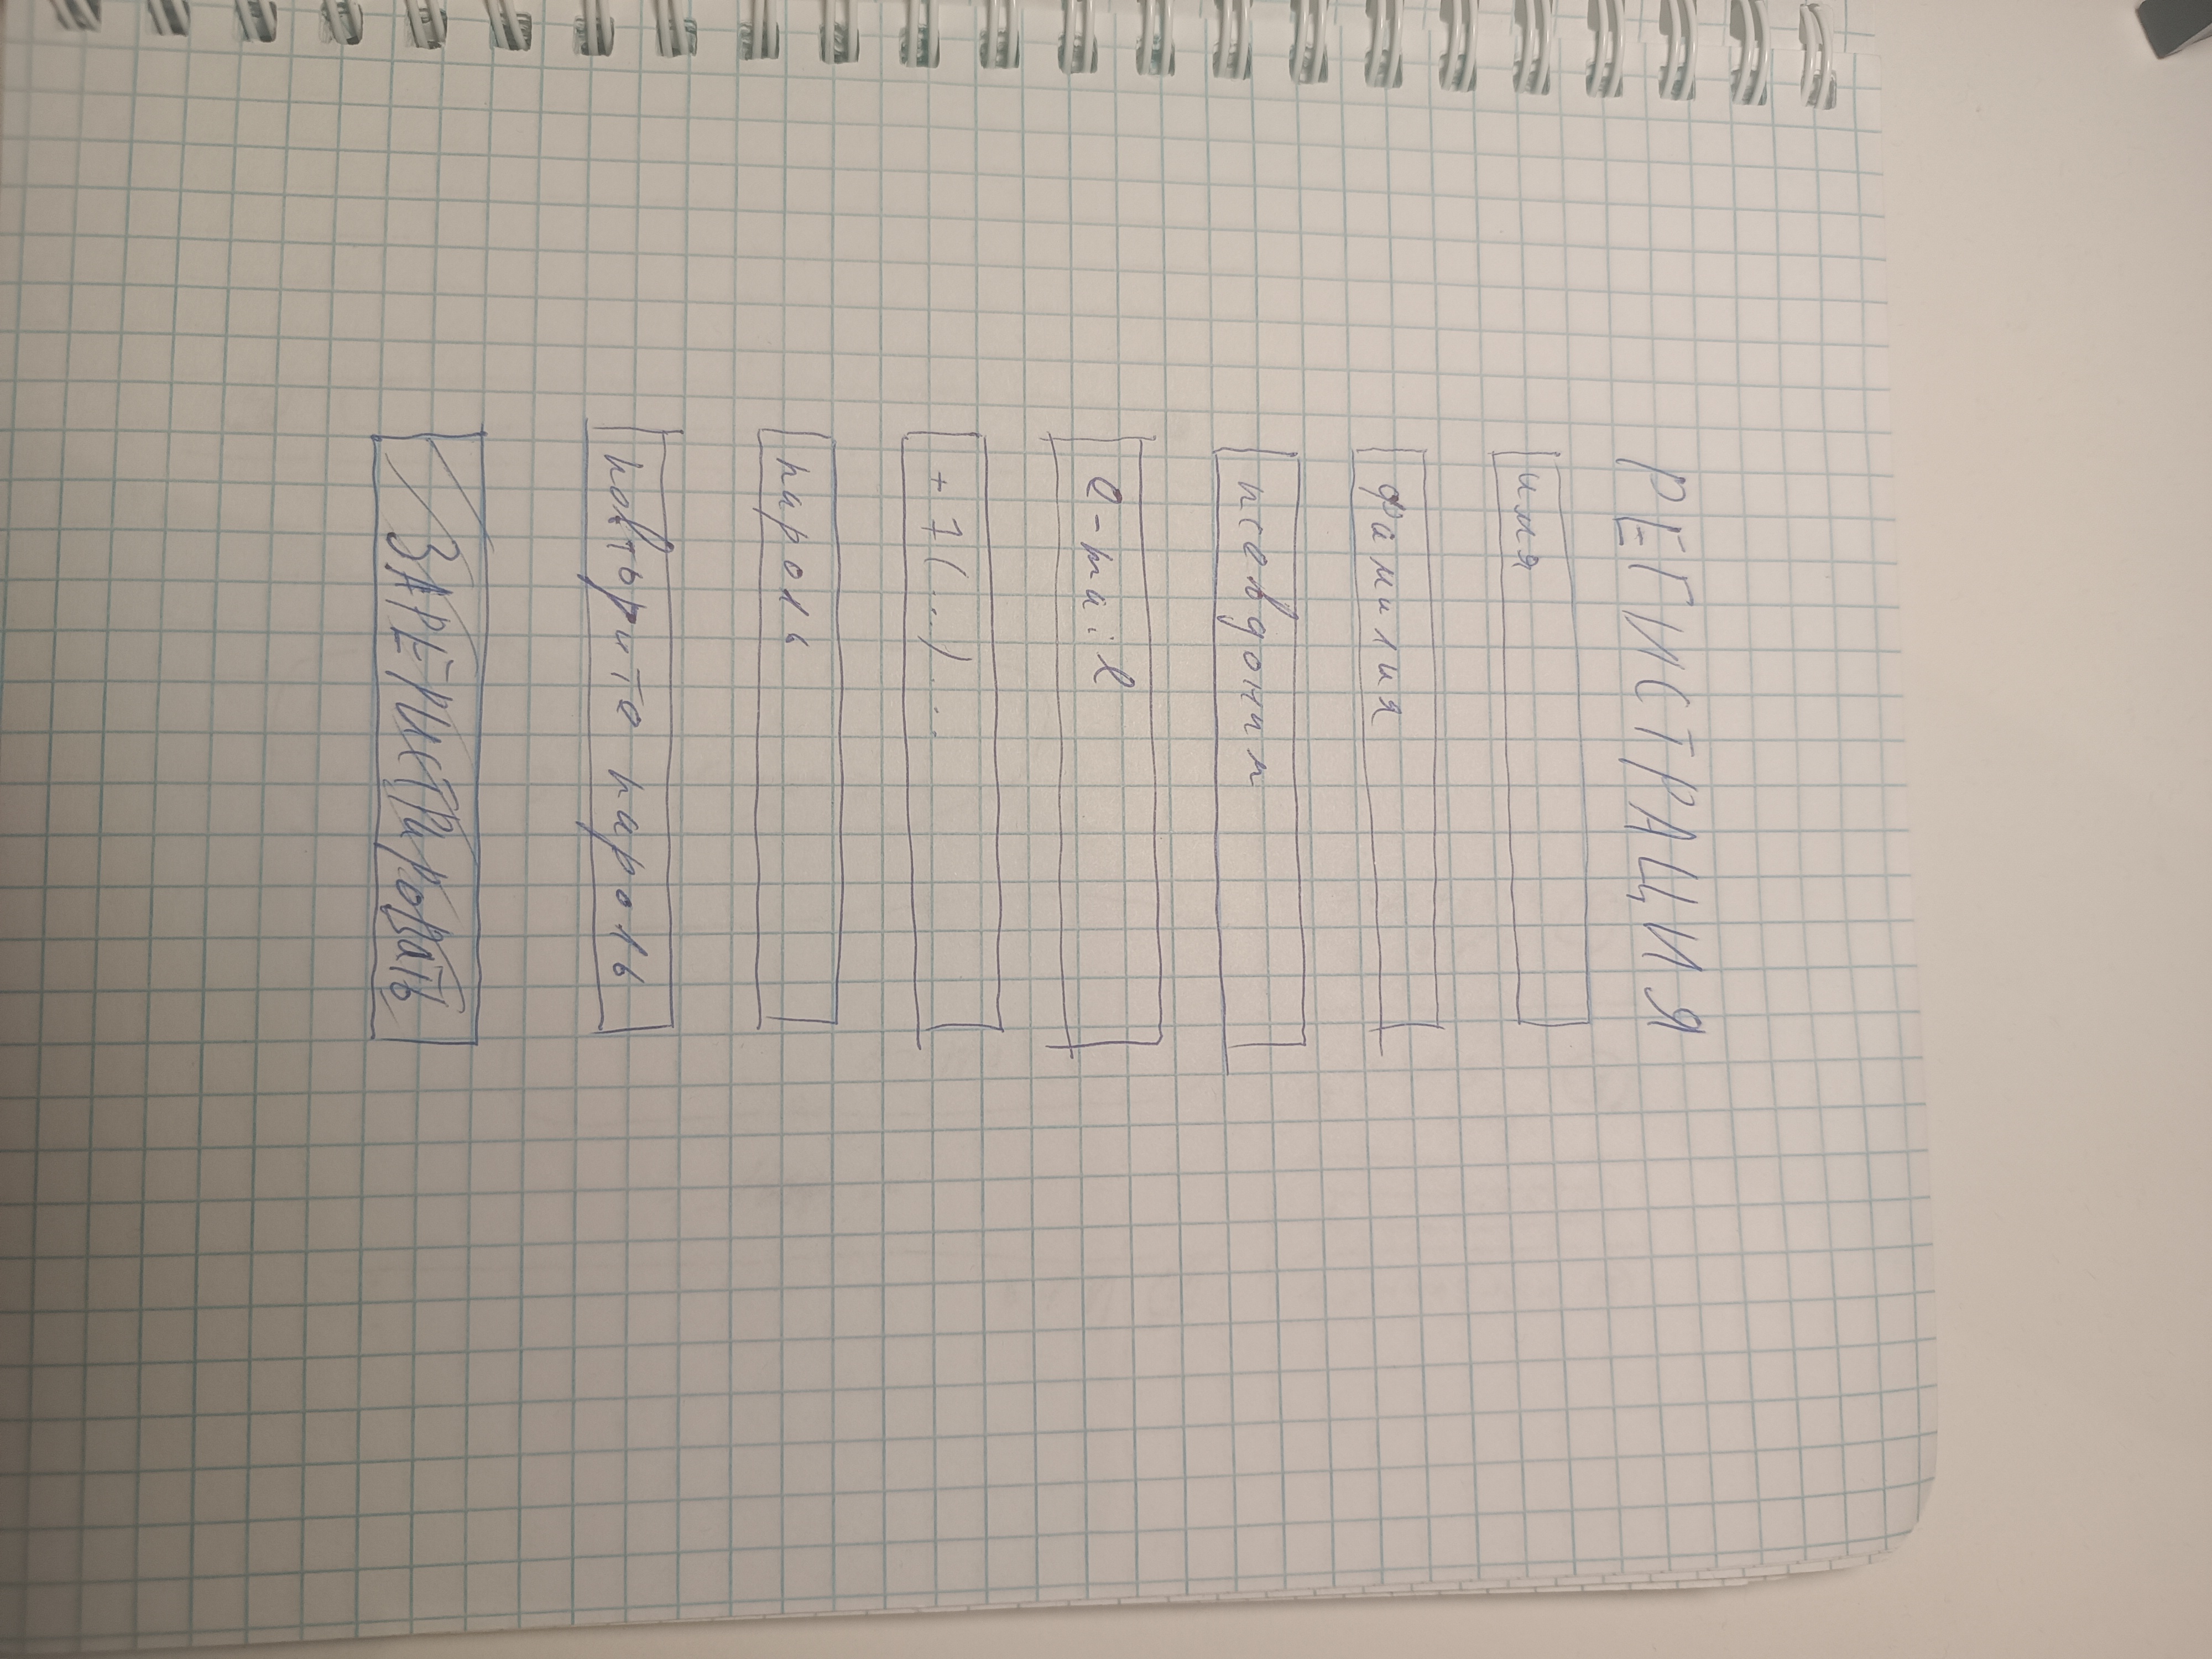 РЕГИСТРАЦИЯ
имя
фамилия
псевдоним
e-mail
+7(...)...
пароль
повторите пароль
ЗАРЕРИСТРИРОВАТЬ